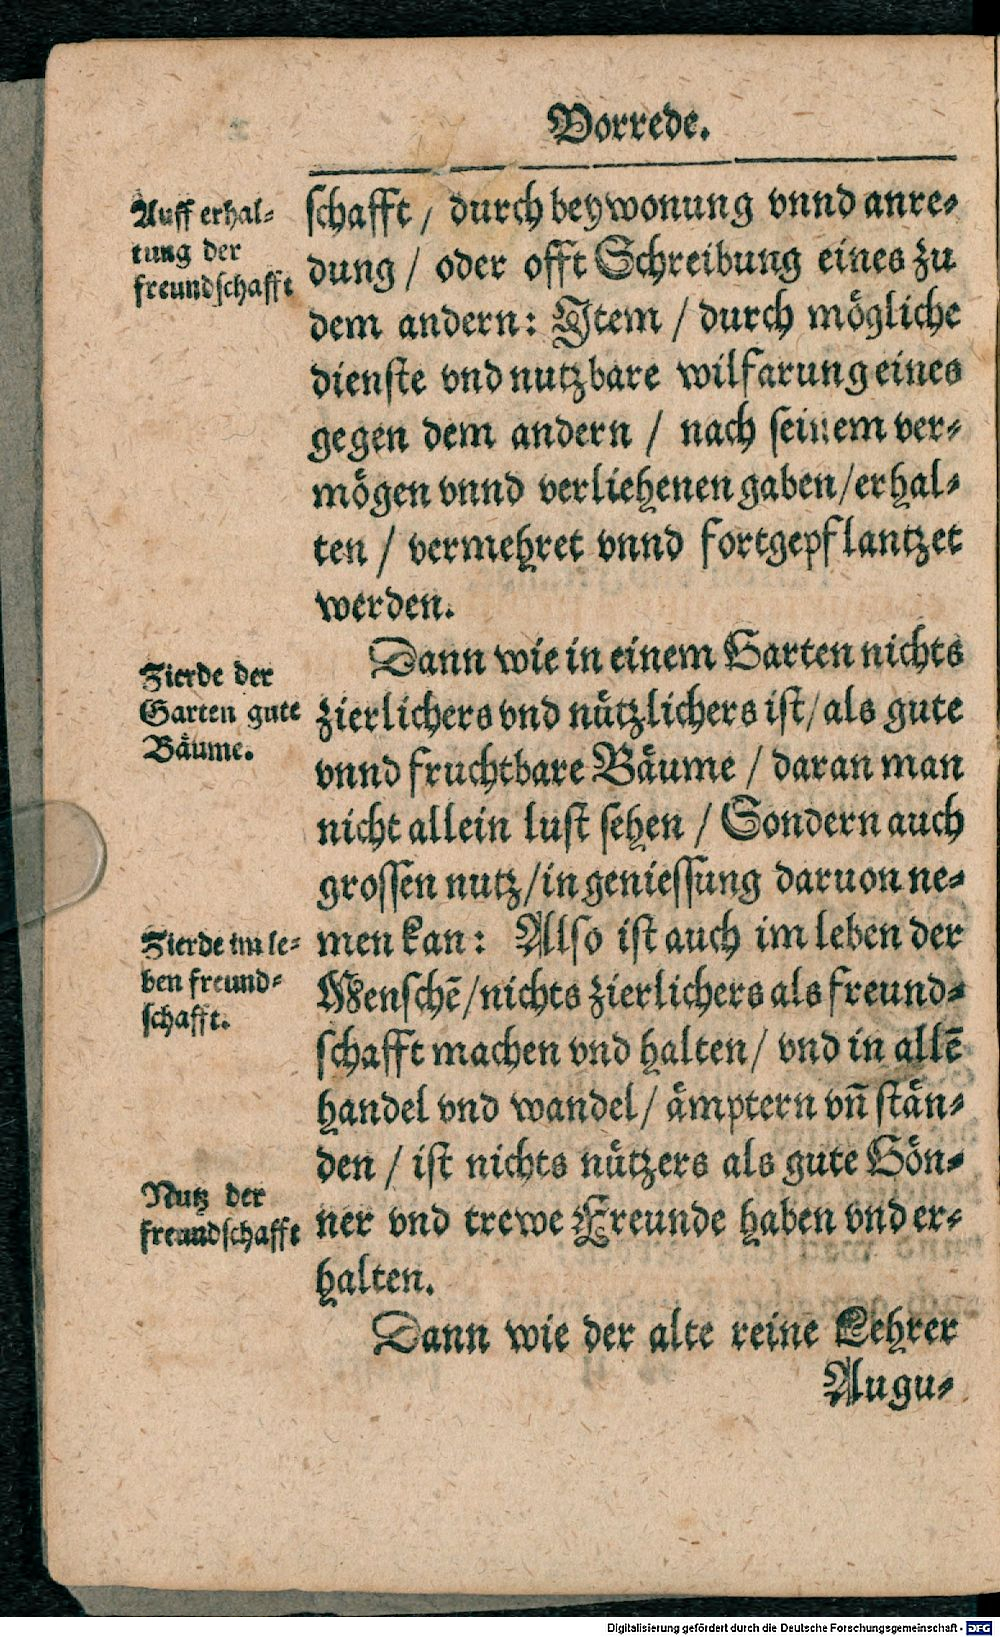 Vorrede.
Auff erhal-
tung der
freundschafft
schafft / durch beywonung vnnd anre-
dung / oder offt Schreibung eines zu
dem andern: Item / durch mögliche
dienste vnd nutzbare wilfarung eines
gegen dem andern / nach seinem ver-
mögen vnnd verliehenen gaben / erhal-
ten / vermehret vnnd fortgepflantzet
werden.
Zierde der
Garten gute
Bäume.
Dann wie in einem Garten nichts
zierlichers vnd nützlichers ist / als gute
vnnd fruchtbare Bäume / daran man
nicht allein lust sehen / Sondern auch
grossen nutz / in geniessung daruon ne-
Zierde im le-
ben freund-
schafft.
men kan: Also ist auch im leben der
Menschē / nichts zierlichers als freund-
schafft machen vnd halten / vnd in allē
handel vnd wandel / ämptern vn̄ stän-
den / ist nichts nützers als gute Gön-
Nutz der
freundschafft
ner vnd trewe Freunde haben vnd er-
halten.
Dann wie der alte reine Lehrer
Augu-
Digitalisierung gefördert durch die Deutsche Forschungsgemeinschaft - DFG